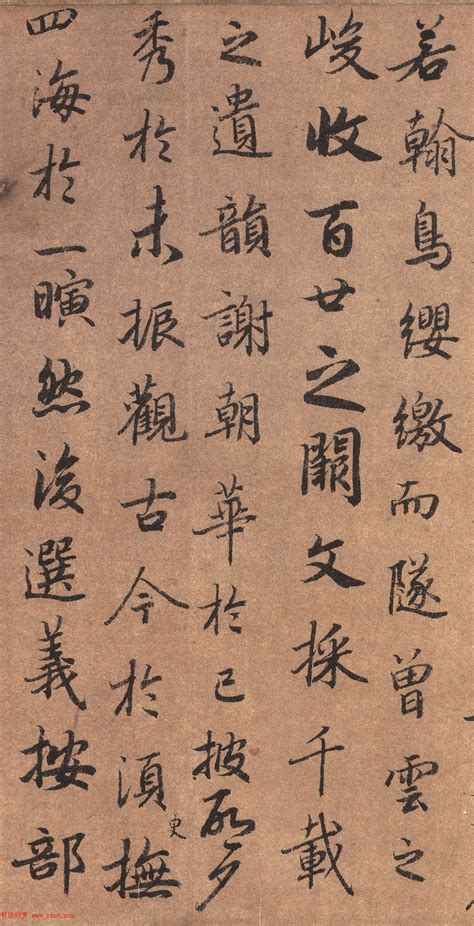 若翰鳥纓繳而隊曾雲之
峻收百廿之闕文採千載
之遺韻謝朝華於已披啓夕
秀於未振觀古今於須臾撫
四海於一瞚然後選義按部
书法欣赏 www.yac8.com